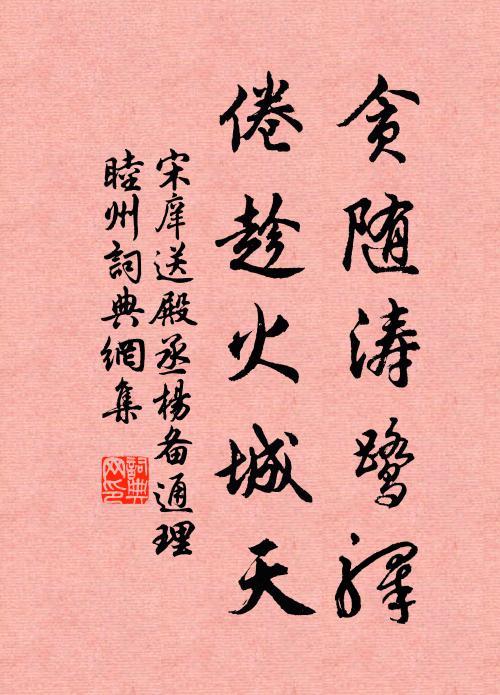 貪随涛鷺驛
倦趁火城天
宋庠送殿丞楊备通理
睦州詞典網集
詞典
网印